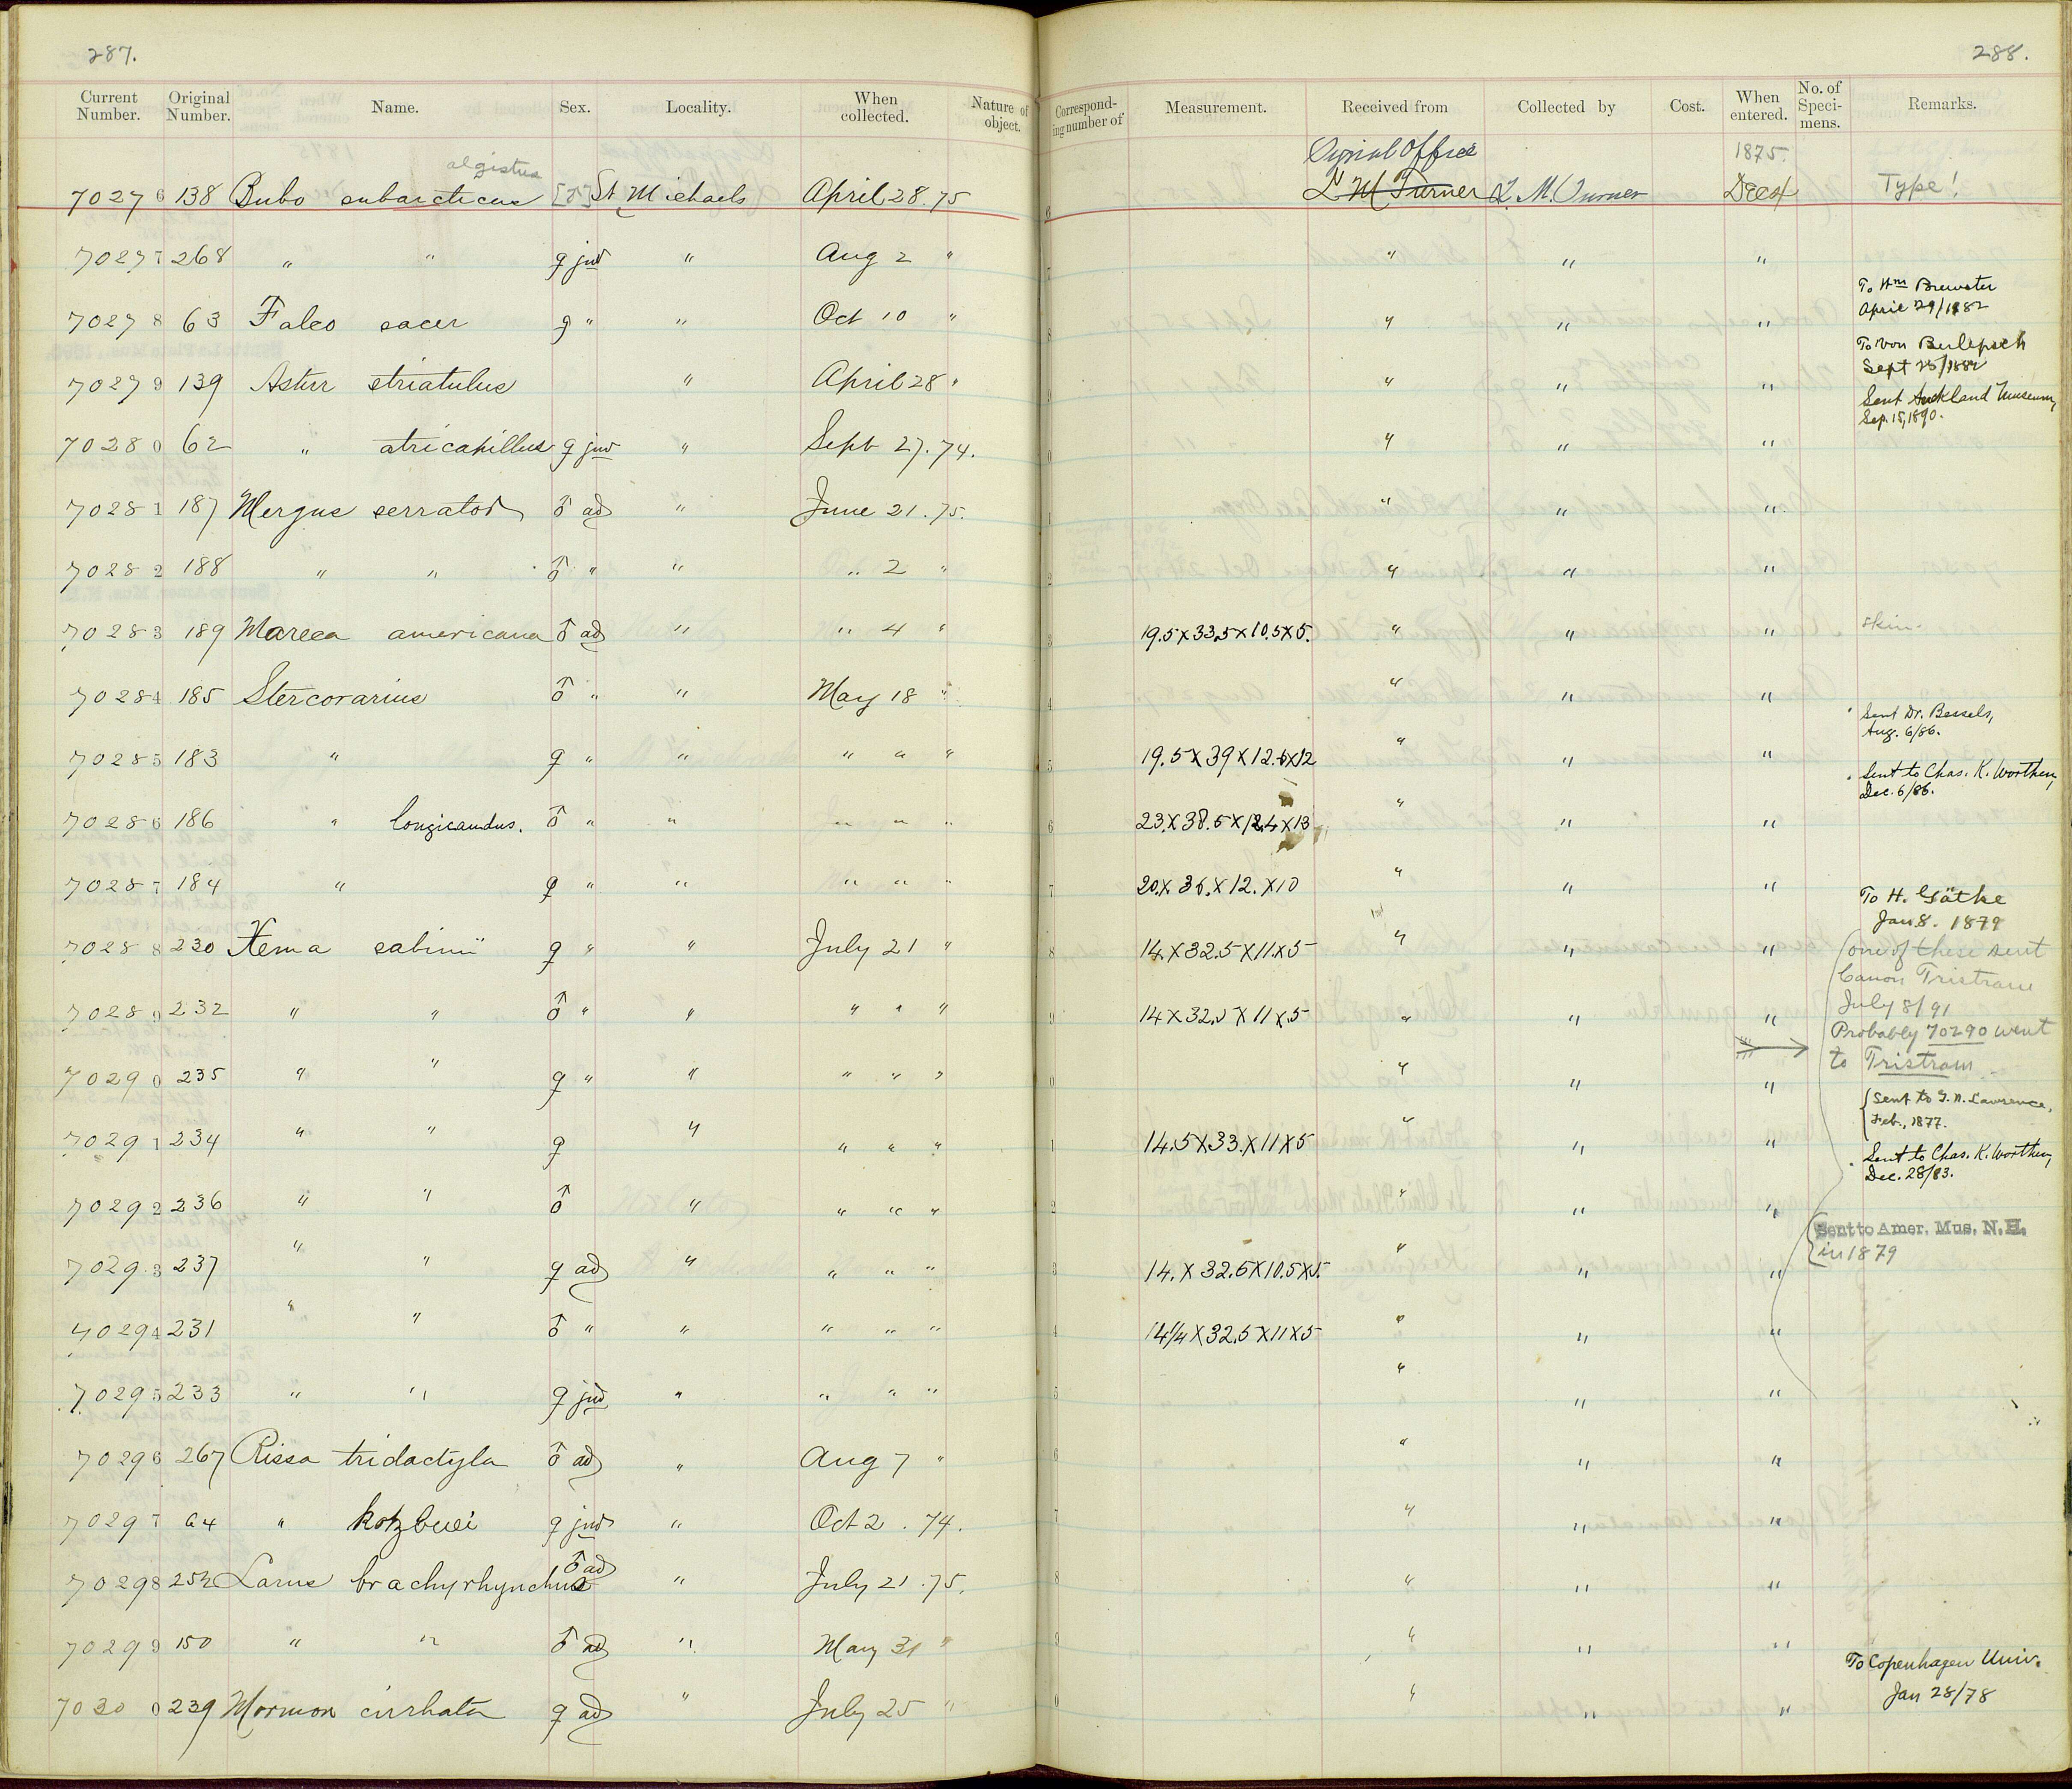 287.
288.
Current Number. Original Number. Name. Sex. Locality. When collected. Nature of object. Corresponding number of Measurement. Received from Collected by Cost. When entered. No. of Specimens. Remarks.
algistus Signal Office 1875.
70276 138 Bubo subarcticus [♂] St Michaels April 28. 75 L M Turner L. M. Turner Dec Type!
70277 268 " " ♀ juv " Aug 2 " " " "
70278 63 Falco sacer ♀ " " Oct 10 " " " " To Wm Brewster April 29/1882
70279 139 Astur striatulus " April 28 " " " " To von Berlepsch Sept 25/1882
70280 62 " atricapillus ♀ juv " Sept 27. 74. " " " Sent Auckland Museum, Sep. 15, 1890.
70281 187 Mergus serrator ♂ ad " June 21. 75. " " "
70282 188 " " ♂ " " " 2 " " " "
70283 189 Mareca americana ♂ ad " " 4 " 19.5 X 33.5 X 10.5 X 5. " " " skin.
70284 185 Stercorarius ♂ " " May 18 " " " " Sent Dr. Bessels, Aug. 6/86.
70285 183 " ♀ " " " " " 19.5 X 39 X 12.5 X 12 " " " Sent to Chas. K. Worthen, Dec. 6/86.
70286 186 " longicaudus. ♂ " " " " " 23. X 38.5 X 12.4 X 13 " " "
70287 184 " ♀ " " " " " 20. X 36. X 12. X 10 " " " To H. Gätke Jan 8. 1879
70288 230 Xema sabinii ♀ " " July 21 " 14. X 32.5 X 11. X 5 " " " one of these sent Canon Tristram July 8/91
70289 232 " " ♂ " " " " " 14 X 32.5 X 11 X .5 " " " Probably 70290 went to Tristram
70290 235 " " ♀ " " " " " " " " Sent to G. N. Lawrence, Feb., 1877.
70291 234 " " ♀ " " " " 14.5 X 33. X 11 X 5 " " " Sent to Chas. K. Worthen, Dec. 28/83.
70292 236 " " ♂ " " " " " " " Sent to Amer. Mus. N. H. in 1879
70293 237 " " ♀ ad " " " " 14. X 32.5 X 10.5 X 5. " " "
70294 231 " " ♂ " " " " " 14¼ X 32.5 X 11 X 5 " " "
70295 233 " " ♀ juv " " " " " " "
70296 267 Rissa tridactyla ♂ ad " Aug 7 " " " "
70297 64 " kotzbuei ♀ juv " Oct 2. 74. " " "
70298 252 Larus brachyrhynchus ♂ ad " July 21. 75. " " "
70299 150 " " ♂ ad " May 31 " " " "
70300 239 Mormon cirrhata ♀ ad " July 25 " " " " To Copenhagen Univ. Jan 28/78